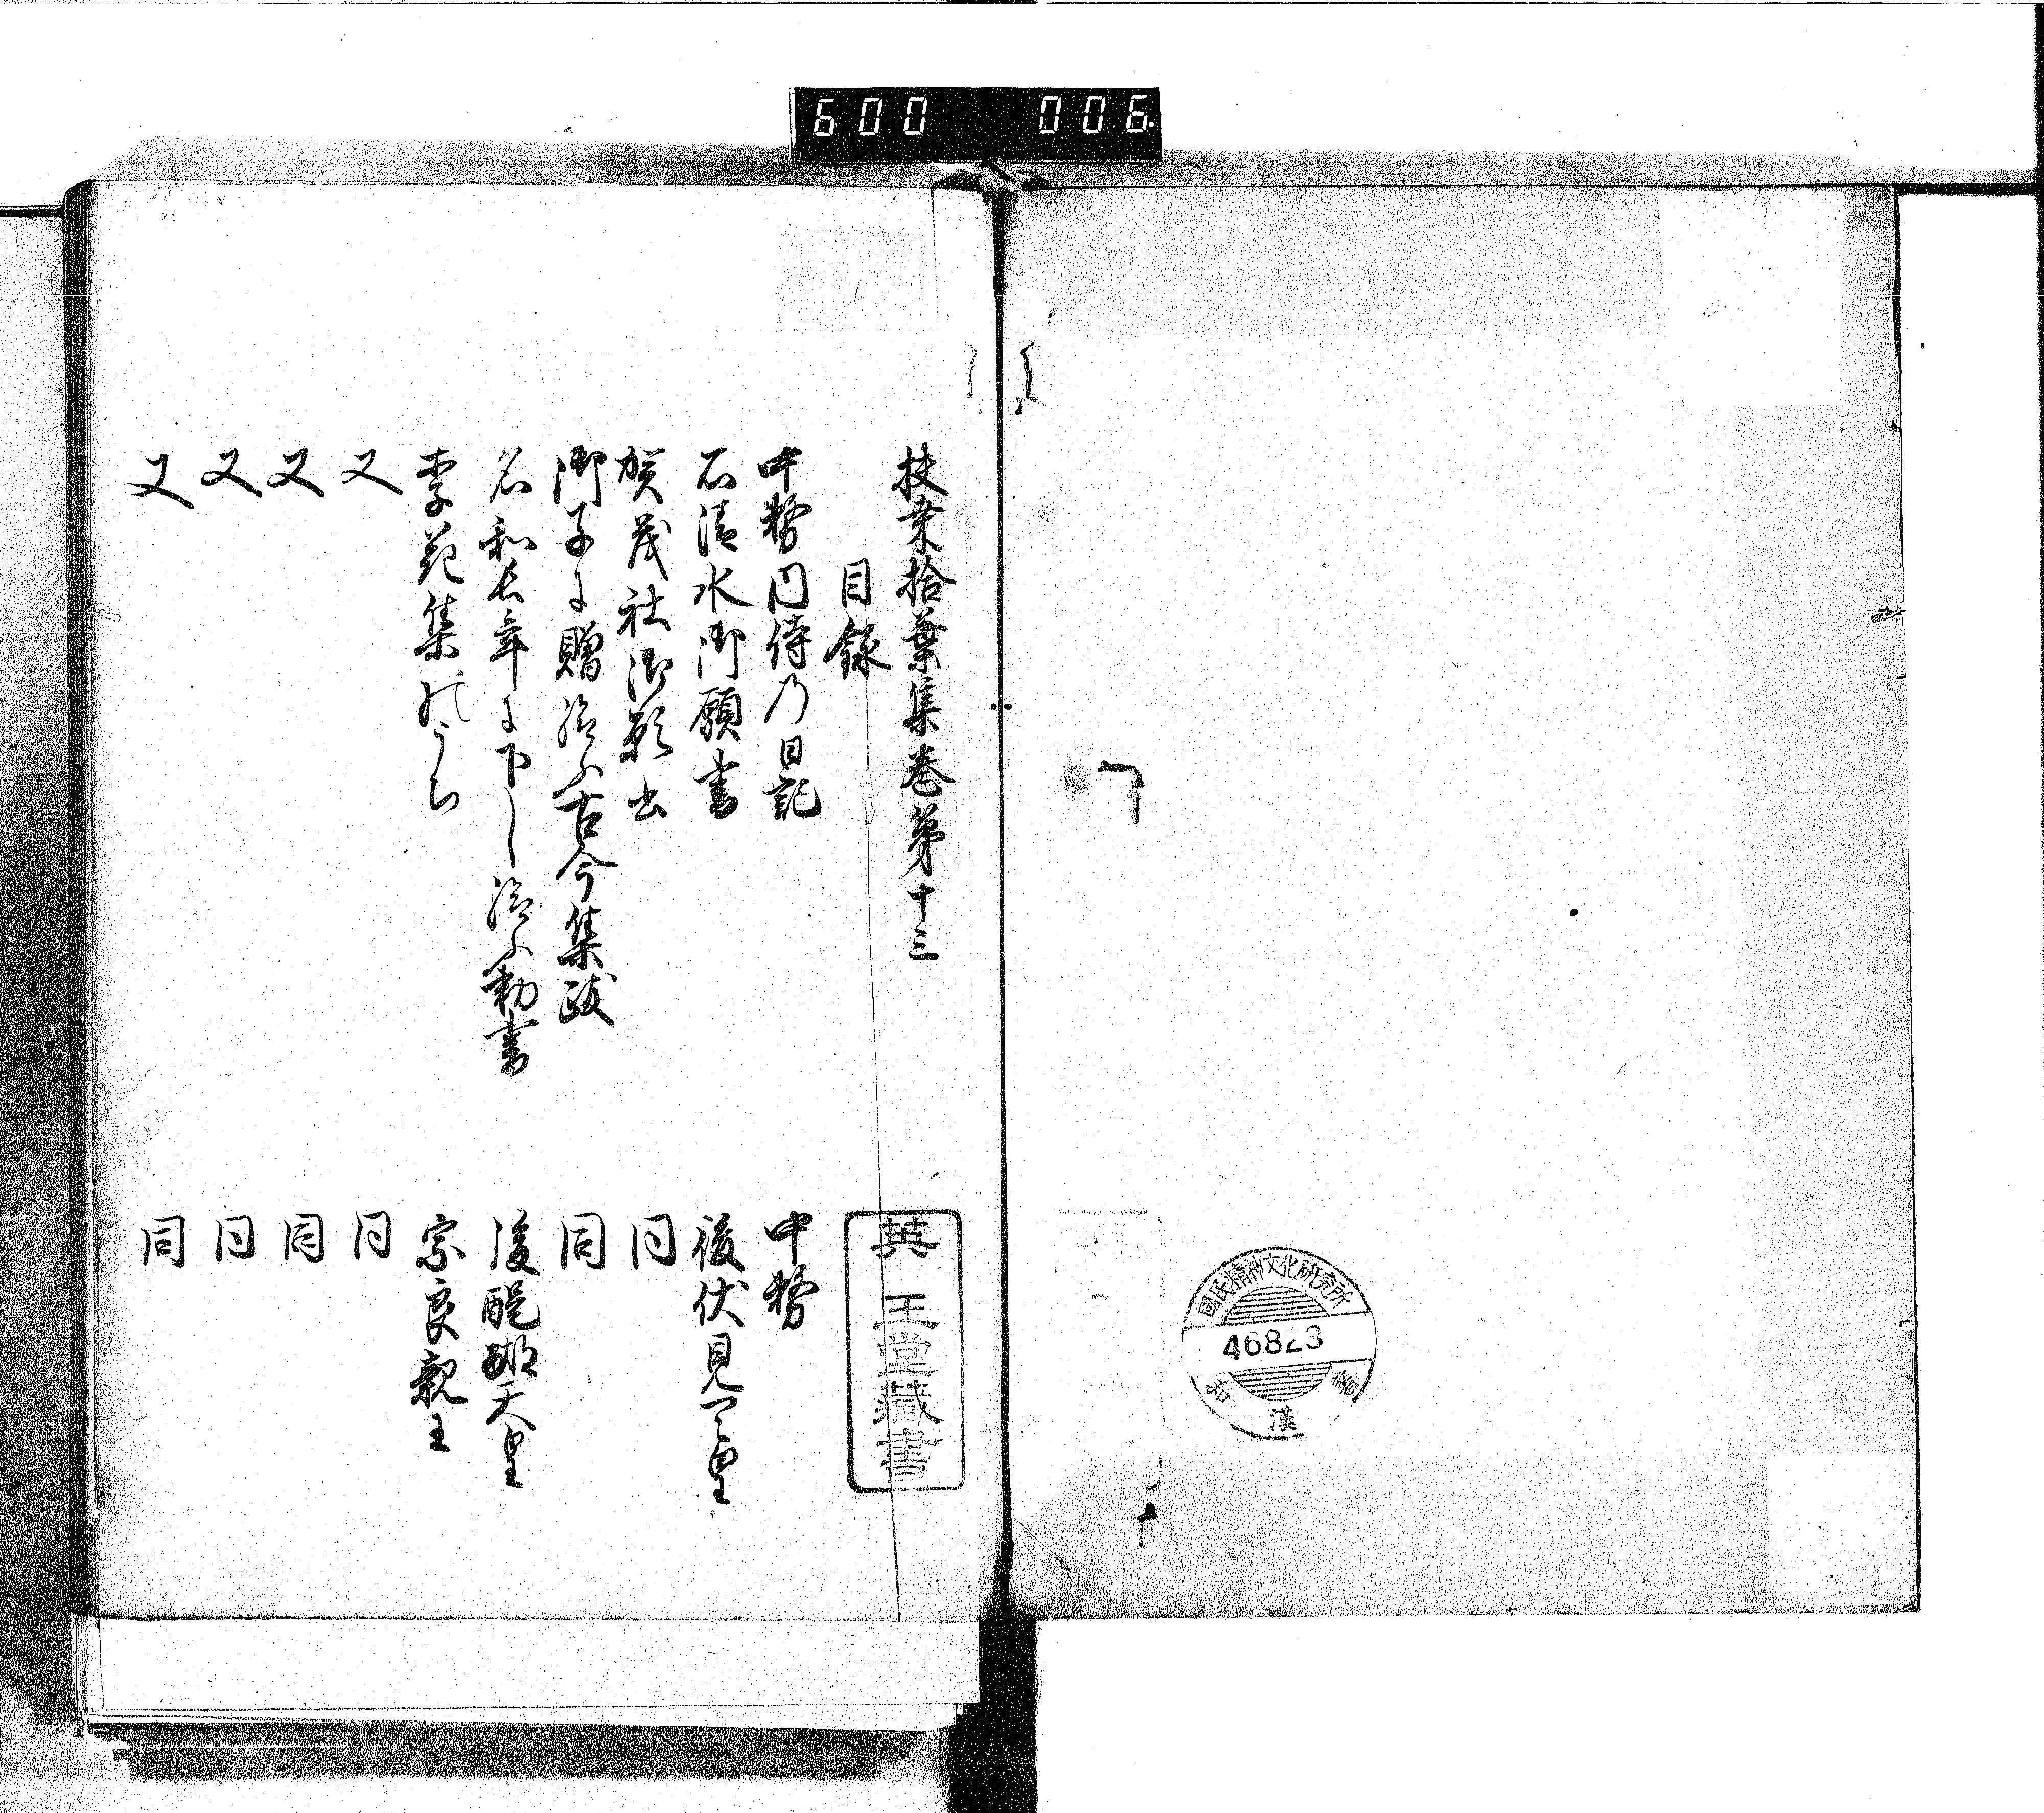 600 006.
國民精神文化研究所
46823
和漢書
扶桒拾葉集巻第十三
目録
英王堂藏書
中務内侍乃日記 中務
石清水御願書 後伏見天皇
賀茂社御願書 同
御子に贈給ふ古今集跋 同
名和長年に下し給ふ勅書 後醍醐天皇
李花集のうち 宗良親王
又 同
又 同
又 同
又 同